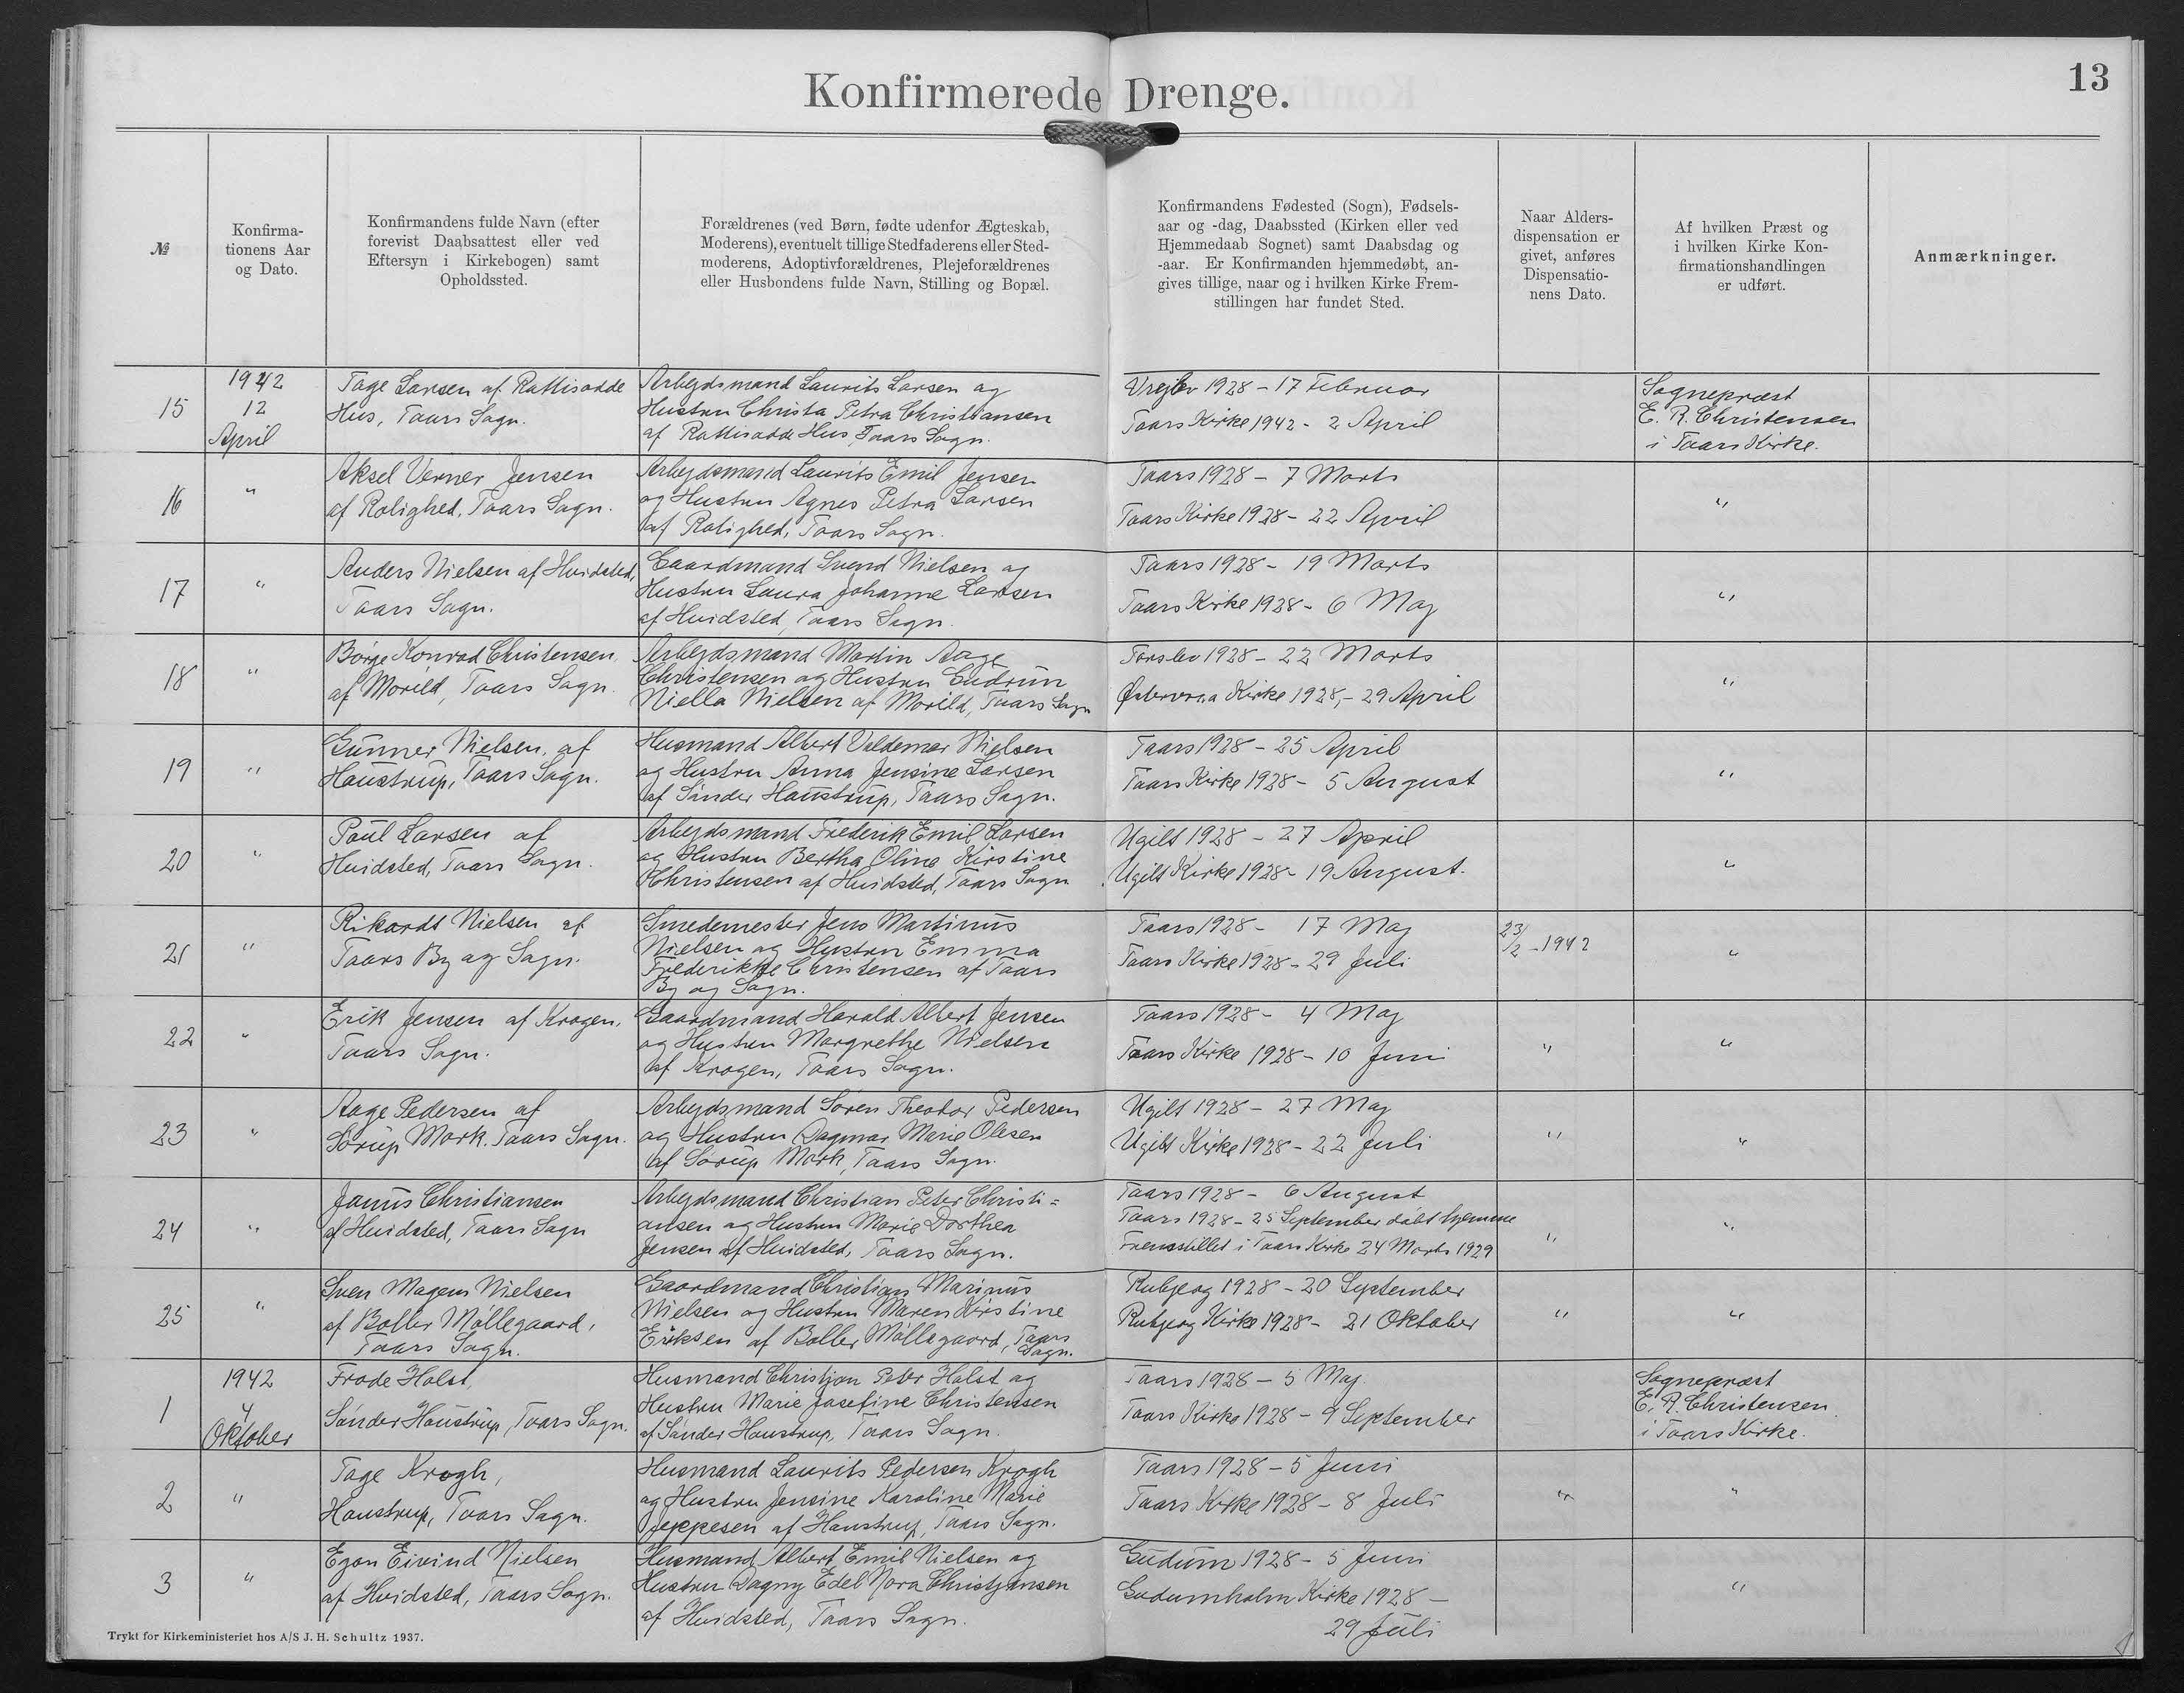 Konfirmerede Drenge.
13
№
Konfirma-
tionens Aar
og Dato.
Konfirmandens fulde Navn (efter
forevist Daabsattest eller ved
Eftersyn i Kirkebogen) samt
Opholdssted.
Forældrenes (ved Børn, fødte udenfor Ægteskab,
Moderens), eventuelt tillige Stedfaderens eller Sted-
moderens, Adoptivforældrenes, Plejeforældrenes
eller Husbondens fulde Navn, Stilling og Bopæl.
Konfirmandens Fødested (Sogn), Fødsels-
aar og -dag, Daabssted (Kirken eller ved
Hjemmedaab Sognet) samt Daabsdag og
-aar. Er Konfirmanden hjemmedøbt, an-
gives tillige, naar og i hvilken Kirke Frem-
stillingen har fundet Sted.
Naar Alders-
dispensation er
givet, anføres
Dispensatio-
nens Dato.
Af hvilken Præst og
i hvilken Kirke Kon-
firmationshandlingen
er udført.
Anmærkninger.
15
1942
12
April
Tage Larsen af Rattisodde
Hus, Taars Sogn.
Arbejdsmand Laurits Larsen og
Hustru Christa Petra Christiansen
af Rattisodde Hus, Taars Sogn.
Vrejlev 1928 - 17 Februar
Taars Kirke 1942 - 2 April
Sognepræst
E. R. Christensen
i Taars Kirke.
16
"
Aksel Verner Jensen
af Rolighed, Taars Sogn.
Arbejdsmand Laurits Emil Jensen
og Hustru Agnes Petra Larsen
af Rolighed, Taars Sogn.
Taars 1928 - 7 Marts
Taars Kirke 1928 - 22 April
"
17
"
Anders Nielsen af Hvidsted,
Taars Sogn.
Gaardmand Svend Nielsen og
Hustru Laura Johanne Larsen
af Hvidsted, Taars Sogn.
Taars 1928 - 19 Marts
Taars Kirke 1928 - 6 Maj
"
18
"
Börge Konrad Christensen
af Morild, Taars Sogn.
Arbejdsmand Martin Aage
Christensen og Hustru Gudrun
Niella Nielsen af Morild, Taars Sogn
Torslev 1928 - 22 Marts
Østervraa Kirke 1928 - 29 April
"
19
"
Gunner Nielsen af
Haustrup, Taars Sogn.
Husmand Albert Valdemar Nielsen
og Hustru Anna Jensine Larsen
af Sönder Haustrup, Taars Sogn.
Taars 1928 - 25 April
Taars Kirke 1928 - 5 August
"
20
"
Poul Larsen af
Hvidsted, Taars Sogn.
Arbejdsmand Frederik Emil Larsen
og Hustru Bertha Oline Kirstine
Christensen af Hvidsted, Taars Sogn
Ugilt 1928 - 27 April
Ugilt Kirke 1928 - 19 August.
"
21
"
Rikardt Nielsen af
Taars By og Sogn.
Smedemester Jens Martinus
Nielsen og Hustru Emma
Frederikke Christensen af Taars
By og Sogn.
Taars 1928 - 17 Maj
Taars Kirke 1928 - 29 Juli
23/2 - 1942
"
22
"
Erik Jensen af Krogen,
Taars Sogn.
Gaardmand Harald Albert Jensen
og Hustru Margrethe Nielsen
af Krogen, Taars Sogn.
Taars 1928 - 4 Maj
Taars Kirke 1928 - 10 Juni
"
"
23
"
Aage Pedersen af
Sörup Mark, Taars Sogn.
Arbejdsmand Sören Theodor Pedersen
og Hustru Dagmar Marie Olesen
af Sörup Mark, Taars Sogn.
Ugilt 1928 - 27 Maj
Ugilt Kirke 1928 - 22 Juli
"
"
24
"
Janus Christiansen
af Hvidsted, Taars Sogn
Arbejdsmand Christian Peter Christi=
ansen og Hustru Marie Dorthea
Jensen af Hvidsted, Taars Sogn.
Taars 1928 - 6 August
Taars 1928 - 25 September döbt hjemme
Fremstillet i Taars Kirke 24 Marts 1929
"
"
25
"
Sven Magens Nielsen
af Boller Möllegaard,
Taars Sogn.
Gaardmand Christian Marinus
Nielsen og Hustru Maren Kirstine
Eriksen af Boller Möllegaard, Taars
Sogn.
Rubjerg 1928 - 20 September
Rubjerg Kirke 1928 - 21 Oktober
"
"
1
1942
4
Oktober
Frode Holst,
Sönder Haustrup, Taars Sogn.
Husmand Christjan Peter Holst og
Hustru Marie Josefine Christensen
af Sönder Haustrup, Taars Sogn.
Taars 1928 - 5 Maj.
Taars Kirke 1928 - 9 September
Sognepræst
E. R. Christensen
i Taars Kirke.
2
"
Tage Krogh,
Haustrup, Taars Sogn.
Husmand Laurits Pedersen Krogh
og Hustru Jensine Karoline Marie
Jeppesen af Haustrup, Taars Sogn.
Taars 1928 - 5 Juni
Taars Kirke 1928 - 8 Juli
"
"
3
"
Egon Eivind Nielsen
af Hvidsted, Taars Sogn.
Husmand Albert Emil Nielsen og
Hustru Dagny Edel Nora Christjansen
af Hvidsted, Taars Sogn.
Gudum 1928 - 5 Juni
Gudumholm Kirke 1928 -
29 Juli
"
Trykt for Kirkeministeriet hos A/S J. H. Schultz 1937.